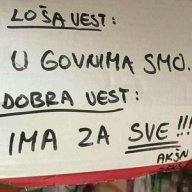 LOŠA VEST:
U GOVNIMA SMO.
DOBRA VEST:
IMA ZA SVE!!!
AKŠN